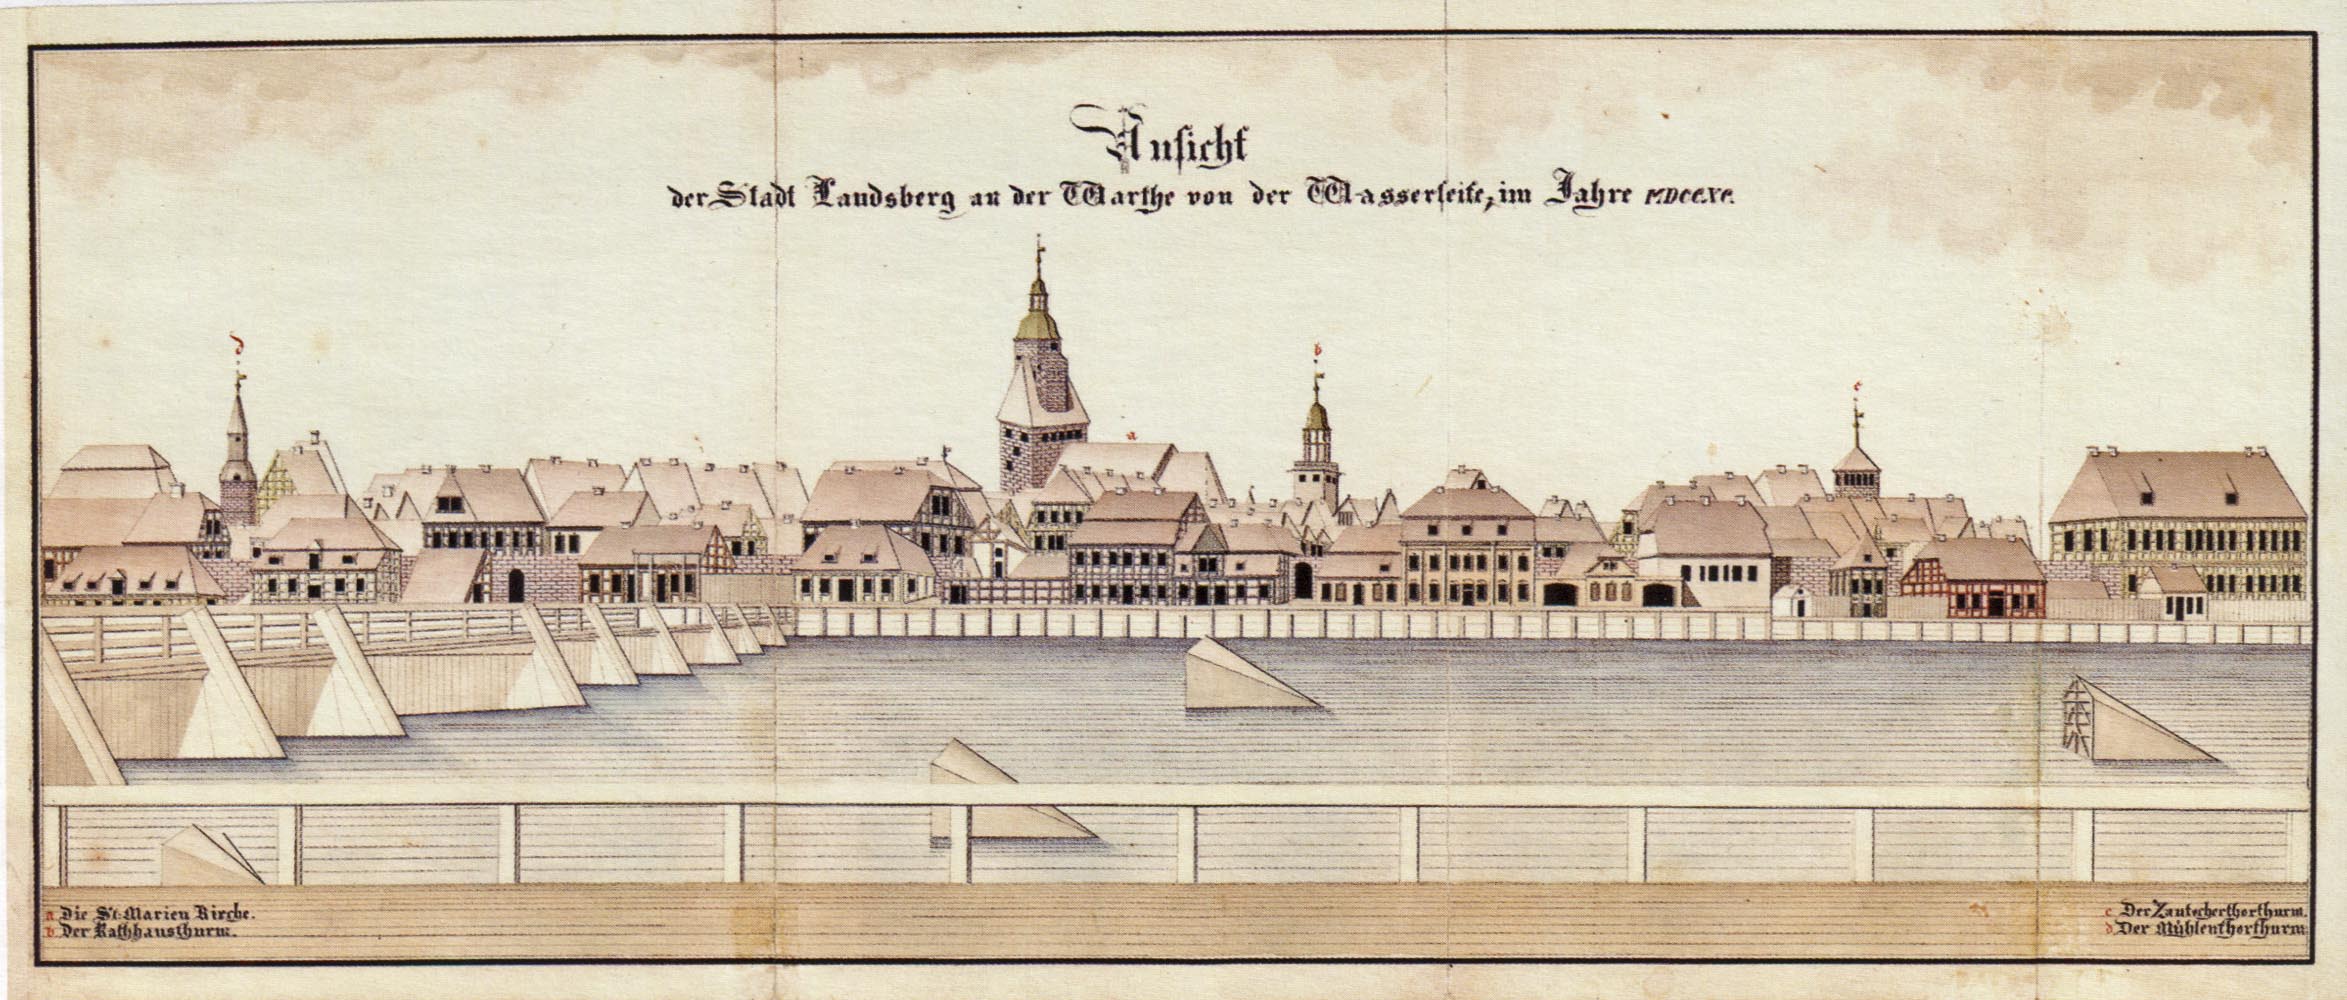 Ansicht
der Stadt Landsberg an der Warthe von der Wasserseite, im Jahre MDCCXC.
d
b
c
a
a Die St. Marien Kirche.
b Der Rathhausthurm.
c Der Zantocherthorthurm.
d Der Mühlenthorthurm.